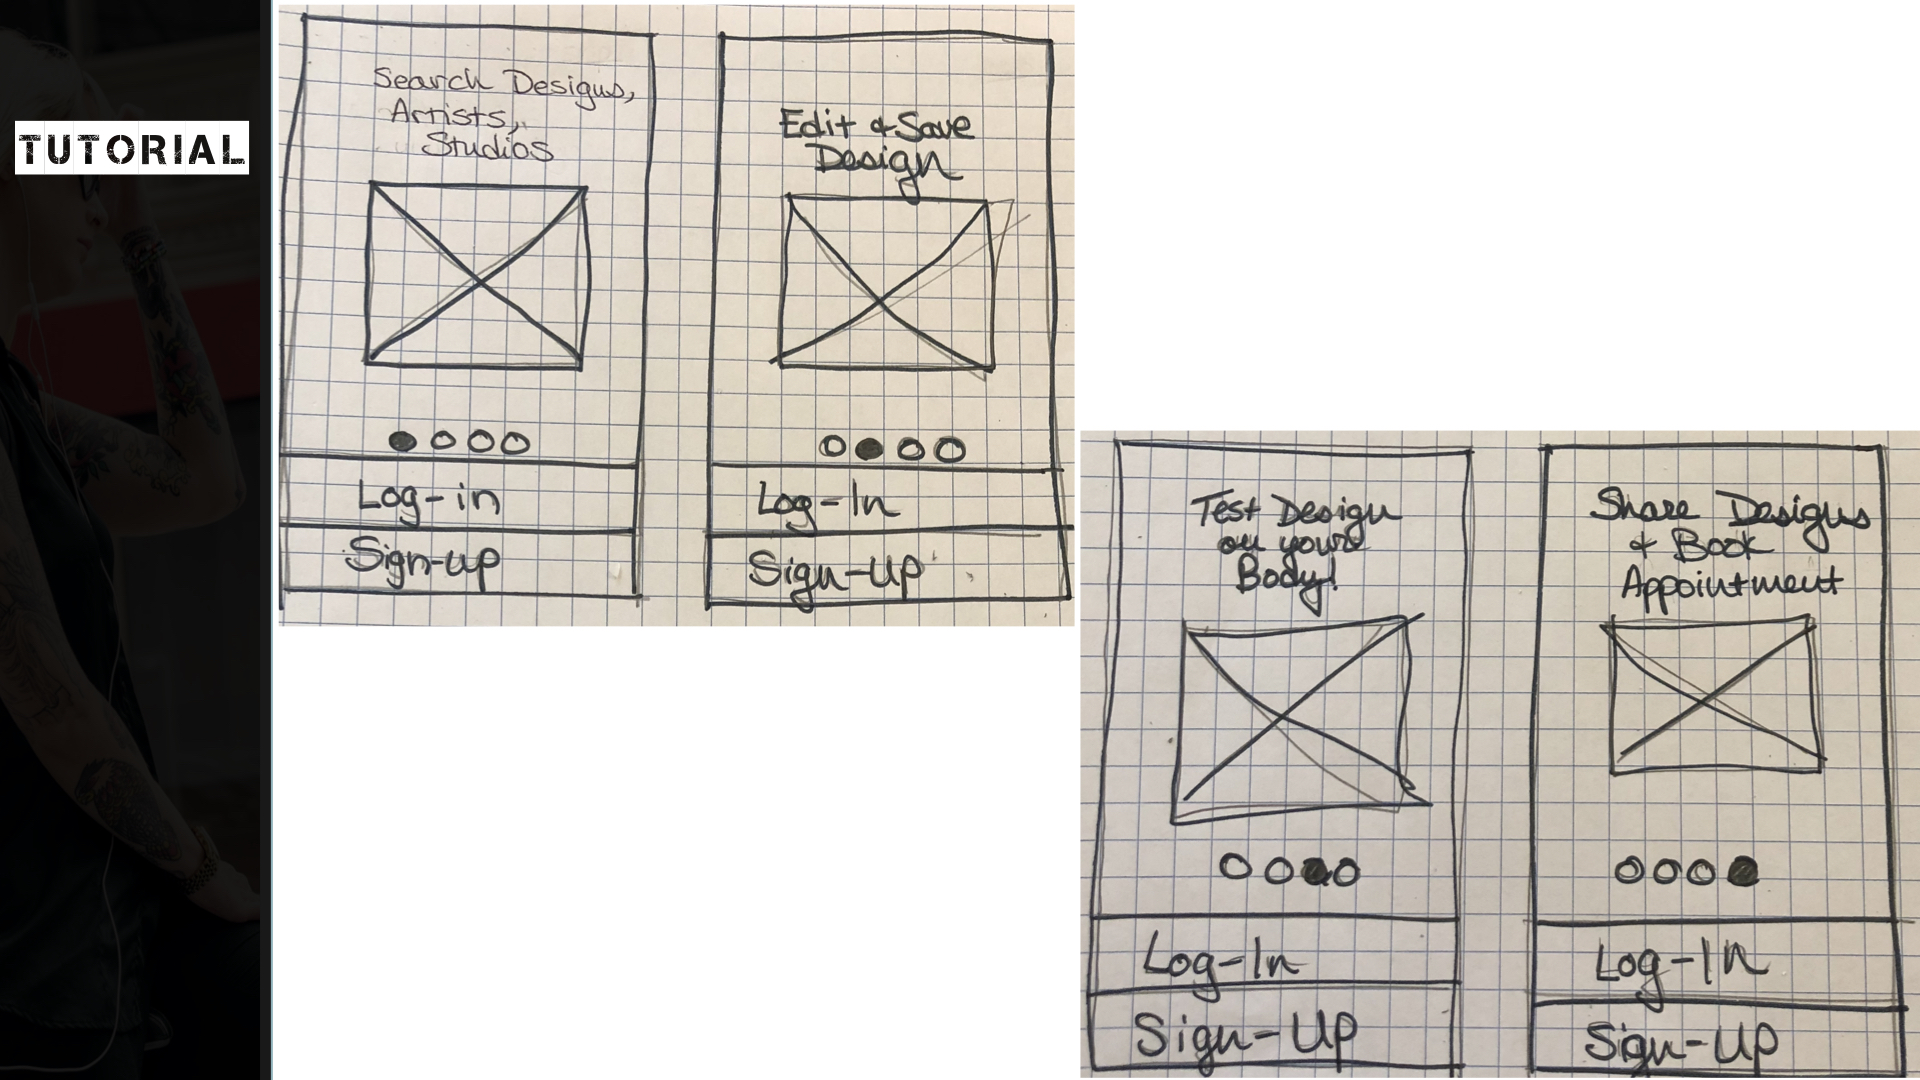 TUTORIAL
Search Designs,
Artists,
Studios
Log-in
Sign-up
Edit & Save
Design
Log-In
Sign-Up
Test Design
on your
Body!
Log-In
Sign-Up
Share Designs
& Book
Appointment
Log-IN
Sign-UP